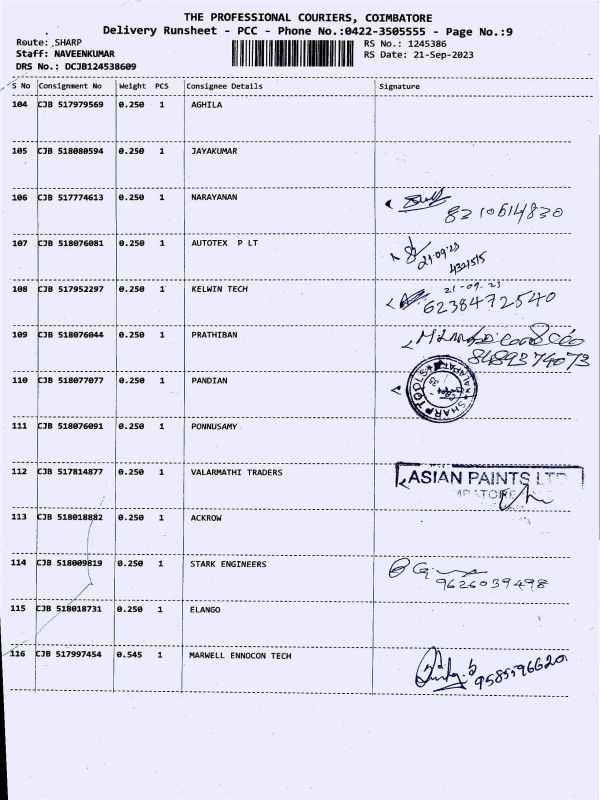 THE PROFESSIONAL COURIERS, COIMBATORE
Delivery Runsheet - PCC - Phone No.:0422-3505555 - Page No.:9
Route: SHARP RS No.: 1245386
Staff: NAVEENKUMAR RS Date: 21-Sep-2023
DRS No.: DCJB124538609
S No Consignment No Weight PCS Consignee Details Signature
104 CJB 517979569 0.250 1 AGHILA
105 CJB 518080594 0.250 1 JAYAKUMAR
106 CJB 517774613 0.250 1 NARAYANAN
8210614830
107 CJB 518076081 0.250 1 AUTOTEX P LT
21-09-23
4321515
108 CJB 517952297 0.250 1 KELWIN TECH
21-09-23
6238472540
109 CJB 518076044 0.250 1 PRATHIBAN
8489374073
110 CJB 518077077 0.250 1 PANDIAN
SHARP TOOLS
111 CJB 518076091 0.250 1 PONNUSAMY
112 CJB 517814877 0.250 1 VALARMATHI TRADERS
ASIAN PAINTS LTD
113 CJB 518018882 0.250 1 ACKROW
114 CJB 518009819 0.250 1 STARK ENGINEERS
9626039498
115 CJB 518018731 0.250 1 ELANGO
116 CJB 517997454 0.545 1 MARWELL ENNOCON TECH
9585596620